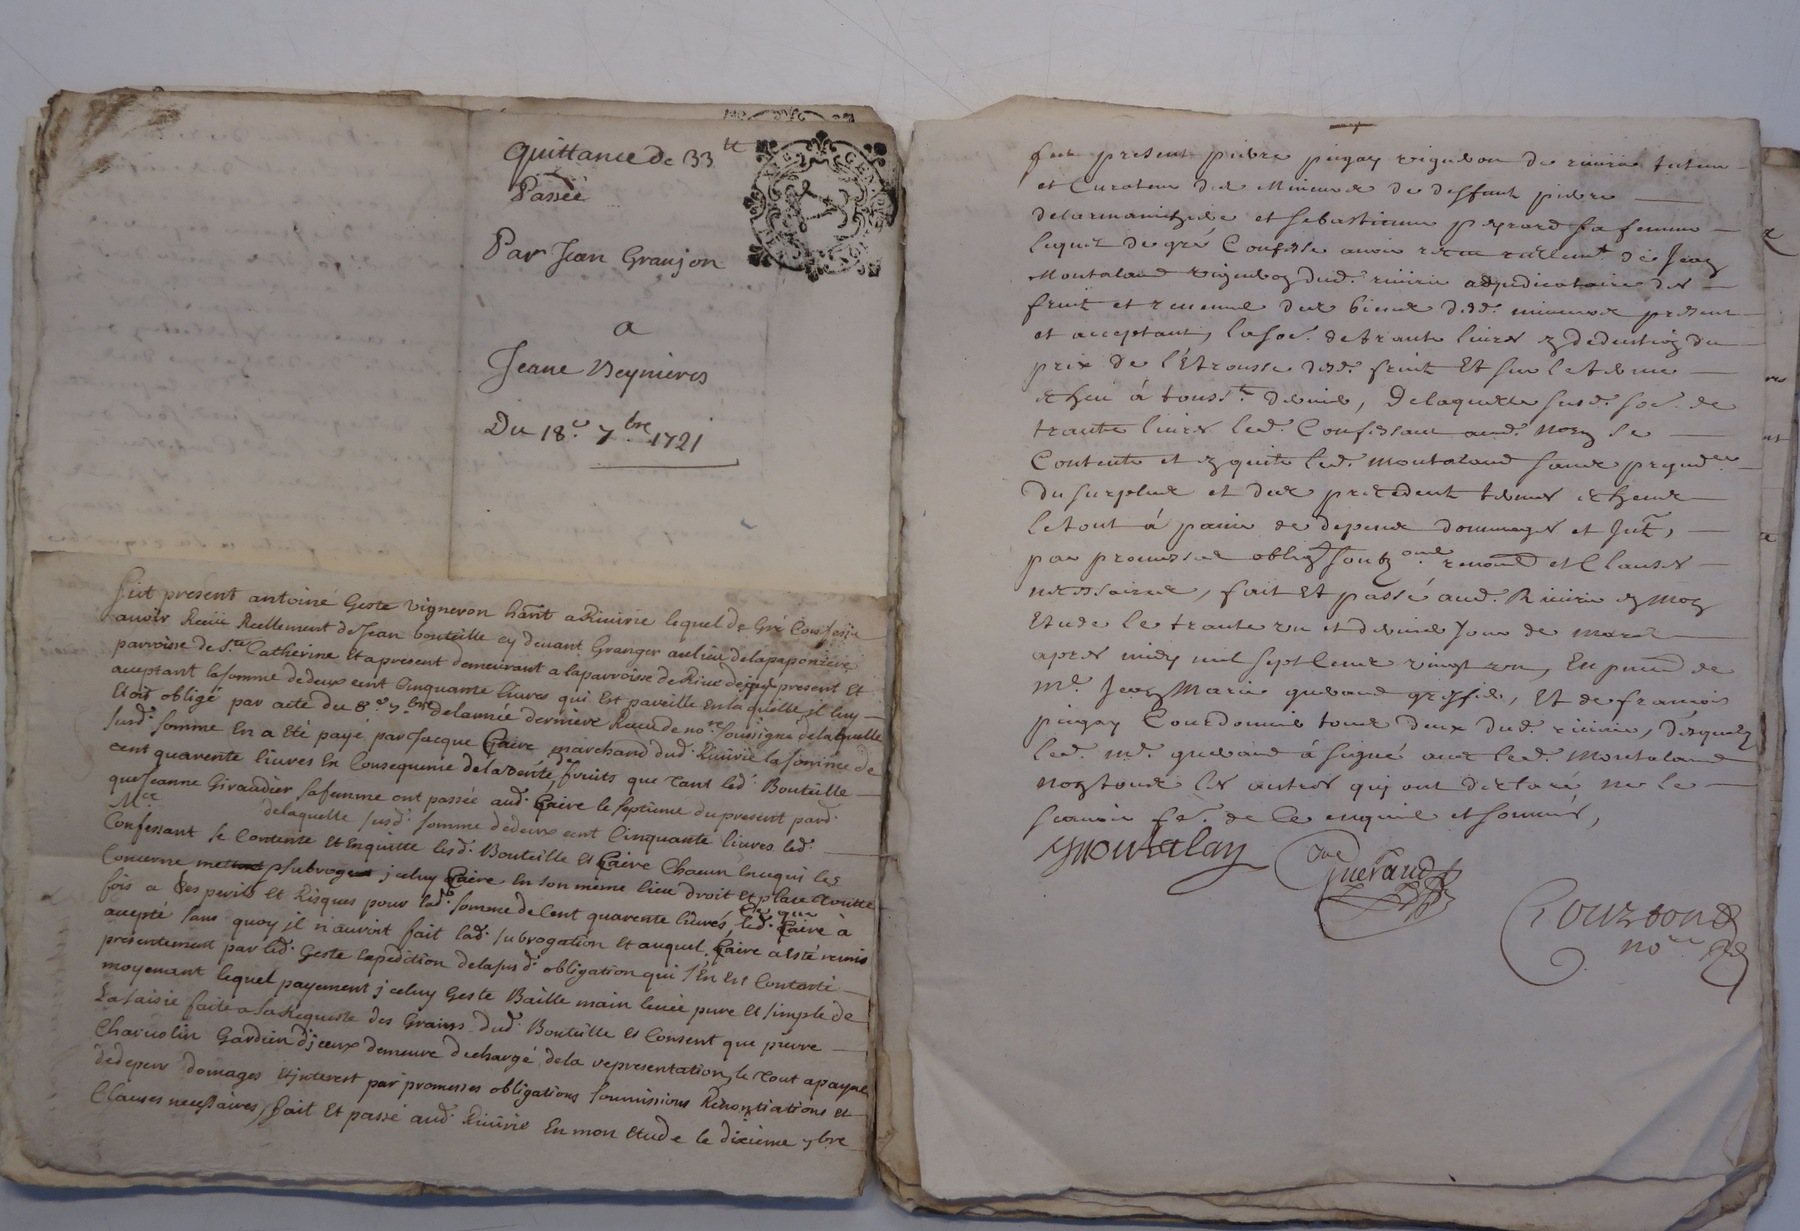 Quittance de 33 tt
Passée
Par Jean Granjon
a
Jeane Veynieres
Du 18e 7bre 1721
fut present antoine Geste vigneron habit. a Riuirie lequel de Gré Confesse
auoir Receu Reellement de Jean bouteille cy deuant Granger au lieu delapaponiere
parroisse de Ste Catherine Et apresent demeurant a la parroisse de Riue present Et
aceptant la somme dedeux cent Cinquante Liures qui Est pareille En la quelle il luy
Etoit obligé par acte du 8e 7bre delannée derniere Receu de nore soussigné delaquelle
susd. somme En a Eté payé par Jacque Caire marchand dud. Riuirie la somme de
cent quarente liures En Consequence dela vente de fruits que tant led. Bouteille
que Jeanne Giraudier sa femme ont passée aud. Caire le septieme du present pard.
Mre delaquelle susd. somme dedeux cent Cinquante liures led.
Confessant se Contente Et Enquitte lesd. Bouteille Et Caire Chacun En cequi les
Concerne subroge jceluy Caire En son meme lieu droit Et place toutte
fois a ses perils Et Risques pour lad. somme de Cent quarente liures, led. Caire à
accepté sans quoy jl n'auroit fait lad. subrogation Et auquel Caire a Esté remis
presentement par led. Geste Expedition delasusd. obligation qui s'En Est Contenté
moyenant lequel payement jceluy Geste Baille main leuée pure Et simple de
La saisie faite a sa Requeste des Grains dud. Bouteille Et Consent que pierre
Charuolin Gardien d'jceux demeure dechargé dela representation, le tout a payne
dedepens domages Et jnterest par promesses obligations soumissions Renontiations Et
Clauses necessaires, fait Et passé aud. Riuirie En mon Etude le dixieme 7bre
fut present pierre pugay vigneron de riuirie tuteur
et Curateur des Mineurs de deffunt pierre
et sebastienne peyrard sa femme
lequel de gré Confesse auoir receu reellemt. de Jean
Montaland vigneron dud. riuirie adjudicataire des
fruits et reuenus des biens desd. mineurs present
et acceptant, la so᷑. de trante liures en deduction du
prix de l'Étrousse desd. fruits Et sur le terme
écheu à touss.t dernier, De laquelle susd. so᷑. de
trante liures led. Confessant aud. nom se
Contente et en quitte led. Montaland sans prejud.ce
Du surplus et des precedent termes écheus
le tout á paine de depens dommages et Jnt.
par promesses oblig. soub.ons renon. et Clauses
necessaires, fait Et passé aud. Riuirie en mon
Etude le trante un et dernier Jour de Mars
apres midy mil sept Cent vingt un, En prnce de
Me. Jean Marie gueraud greffier, Et de francois
pugay Courdonnier tous deux dud. riuirie, Desquels
led. Me. gueraud á signé auec led. Montaland
non tous les autres qui ont declaré ne le
scauoir fe. de Ce enquis et sommés,
Montalan
Gueraud
Courdon
nore